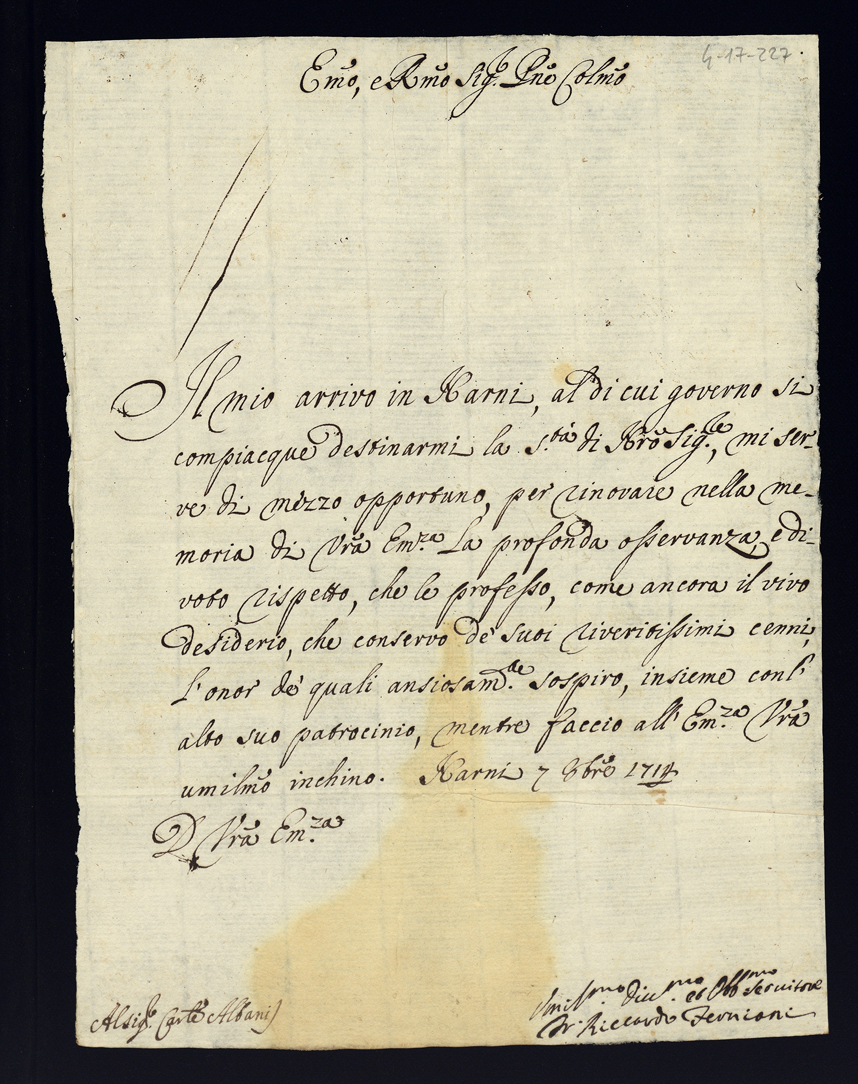 4-17-227
Emo, e Rmo Sig.r Pne Colmo
Il mio arrivo in Narni, al di cui governo si
compiacque destinarmi la S.tà di Nro Sig.re, mi ser-
ve di mezzo opportuno, per rinovare nella me-
moria di Vrã Em.za La profonda osservanza, e di-
voto rispetto, che le professo, come ancora il vivo
desiderio, che conservo de' suoi riveritissimi cenni,
l'onor de' quali ansiosam.te sospiro, insieme con l'
alto suo patrocinio, mentre faccio all' Em.za Vrã
umilmo inchino. Narni 7 8bre 1714
D Vrã Em.za
Al Sig.r Carle Albani
Umil.mo Div.mo et Obb.mo Servitore
Riccardo